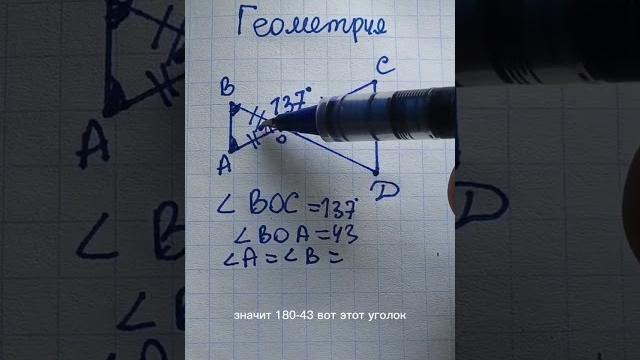 Геометрия
C
B
137°
A
O
D
∠ BOC = 137°
∠ BOA = 43
∠A = ∠B =
значит 180-43 вот этот уголок